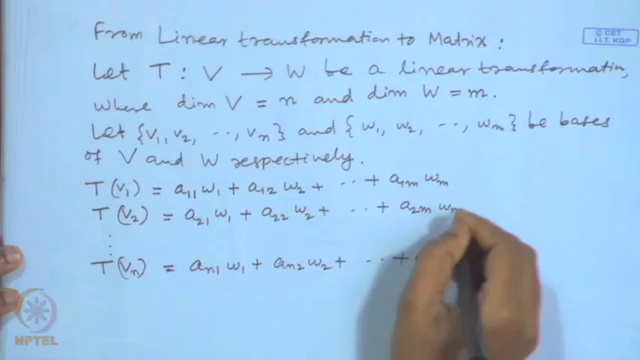 © CET
I.I.T. KGP
From Linear transformation to Matrix :
Let T : V → W be a linear transformation,
where dim V = n and dim W = m.
Let {v₁, v₂, .., vₙ} and {w₁, w₂, .., wₘ} be bases
of V and W respectively.
T(v₁) = a₁₁ w₁ + a₁₂ w₂ + .. + a₁ₘ wₘ
T(v₂) = a₂₁ w₁ + a₂₂ w₂ + .. + a₂ₘ
⋮
T(vₙ) = aₙ₁ w₁ + aₙ₂ w₂ + .. +
NPTEL